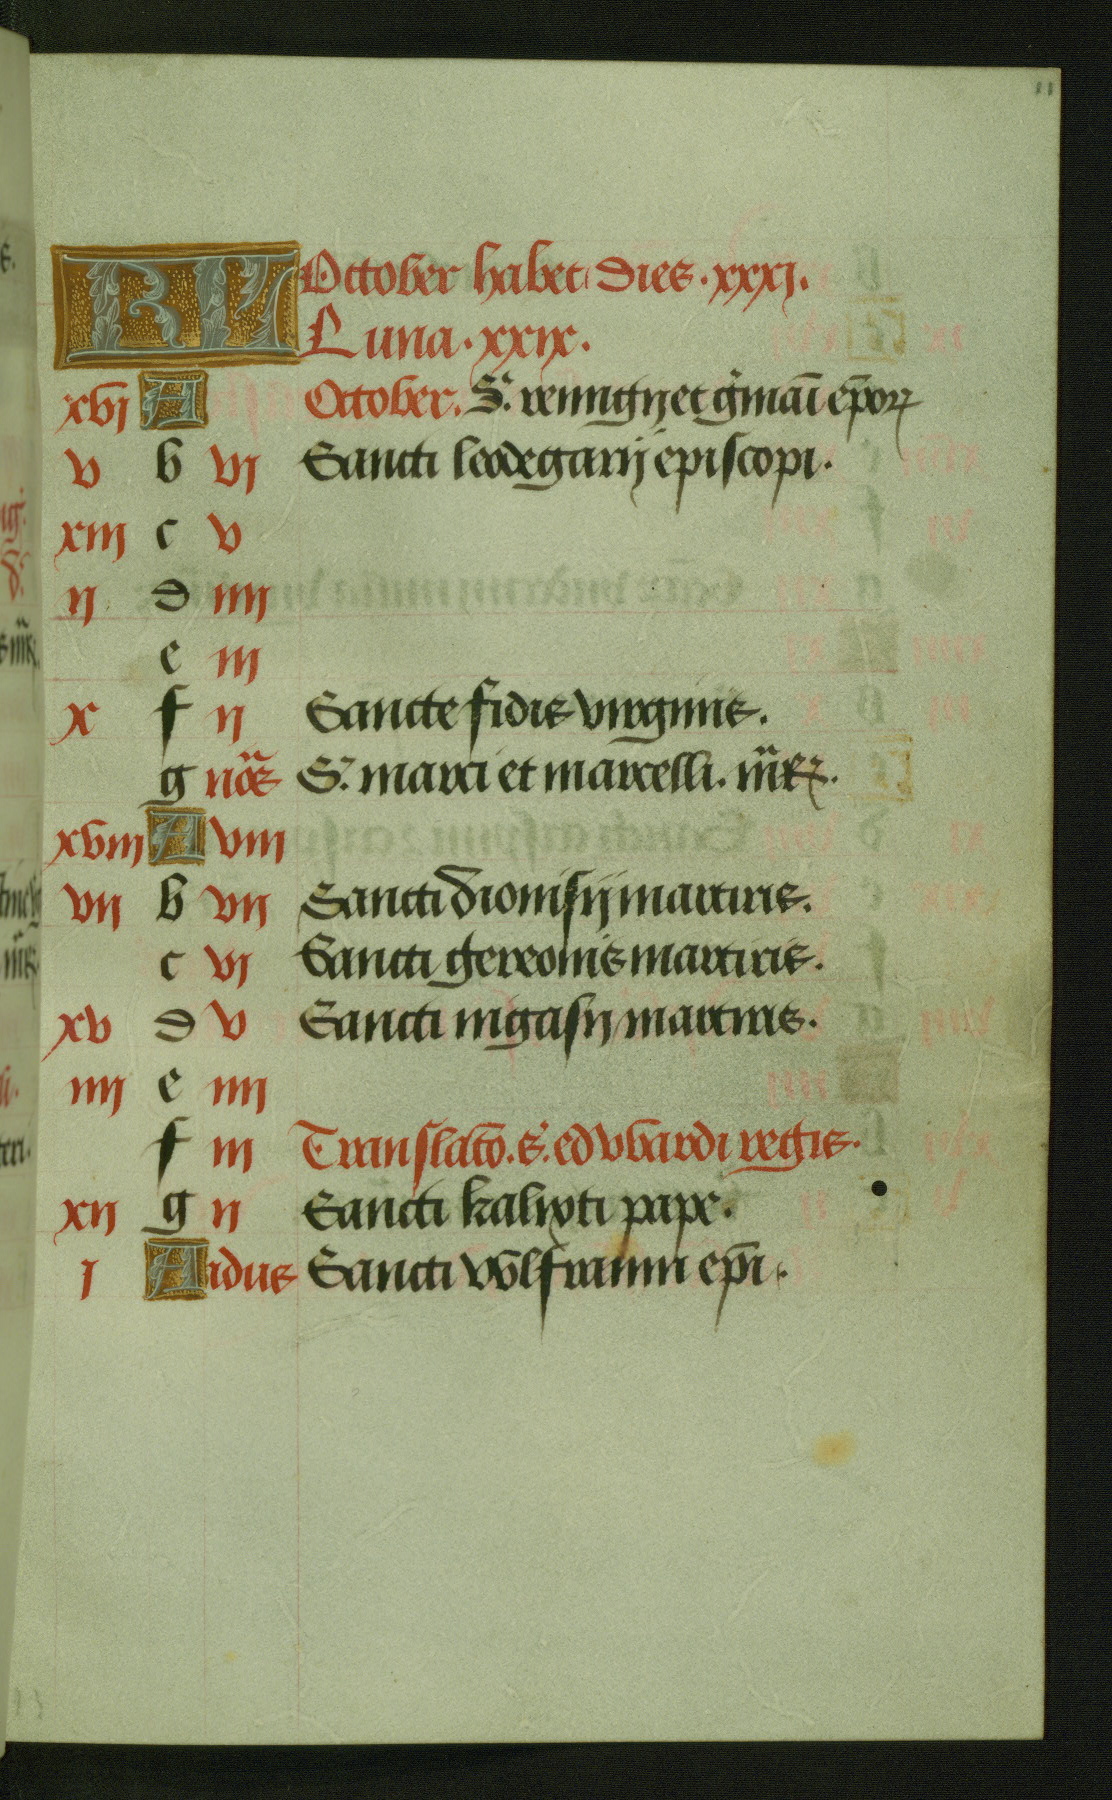 KL October habet dies .xxxi.
Luna .xxix.
xvi A October. S. remigij et g̃mani ep̃oꝝ
v b vi Sancti leodegarij episcopi.
xiii c v
ii d iiii
e iii
x f ii Sancte fidis virginis.
g nõs S. marci et marcelli. m̃rꝝ.
xviii A viii
vii b vii Sancti dionisij martiris.
c vi Sancti gereonis martiris.
xv d v Sancti nigasij martiris.
iiii e iiii
f iii Translatõ. s̃. edvvardi regis.
xii g ii Sancti kalixti pape.
i A idus Sancti vvlfranni ep̃i.